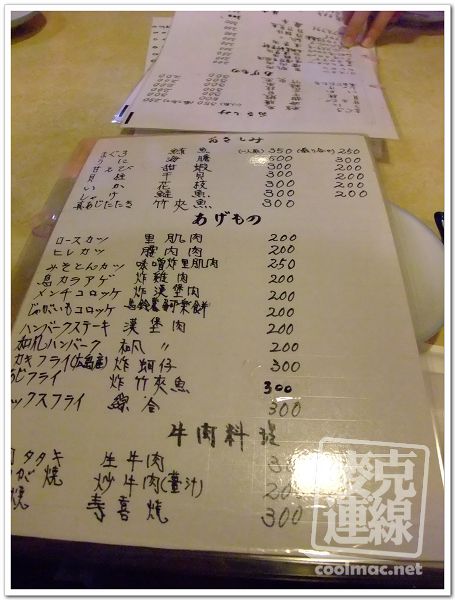 おさしみ
まぐろ 鮪魚 (一人前) 350 (盛り合わせ) 250
うに 海膽 500 300
甘えび 甜蝦 300 200
貝柱 干貝 300 200
いか 花枝 300 200
しゃけ 鮭魚 300 200
真あじたたき 竹夾魚 300
あげもの
ロースカツ 里肌肉 200
ヒレカツ 腰内肉 200
みそとんカツ 味噌炸里肌肉 250
鳥カラアゲ 炸雞肉 200
メンチコロッケ 炸漢堡肉 200
じゃがいもコロッケ 馬鈴薯可樂餅 200
ハンバークステーキ 漢堡肉 200
和風ハンバーク 和風 〃 200
カキフライ(広島産) 炸蚵仔 300
じフライ 炸竹夾魚 300
ックスフライ 綜合 300
牛肉料理
タタキ 生牛肉
が焼 炒牛肉(薑汁) 200
焼 寿喜燒 300
麥克連線
coolmac.net